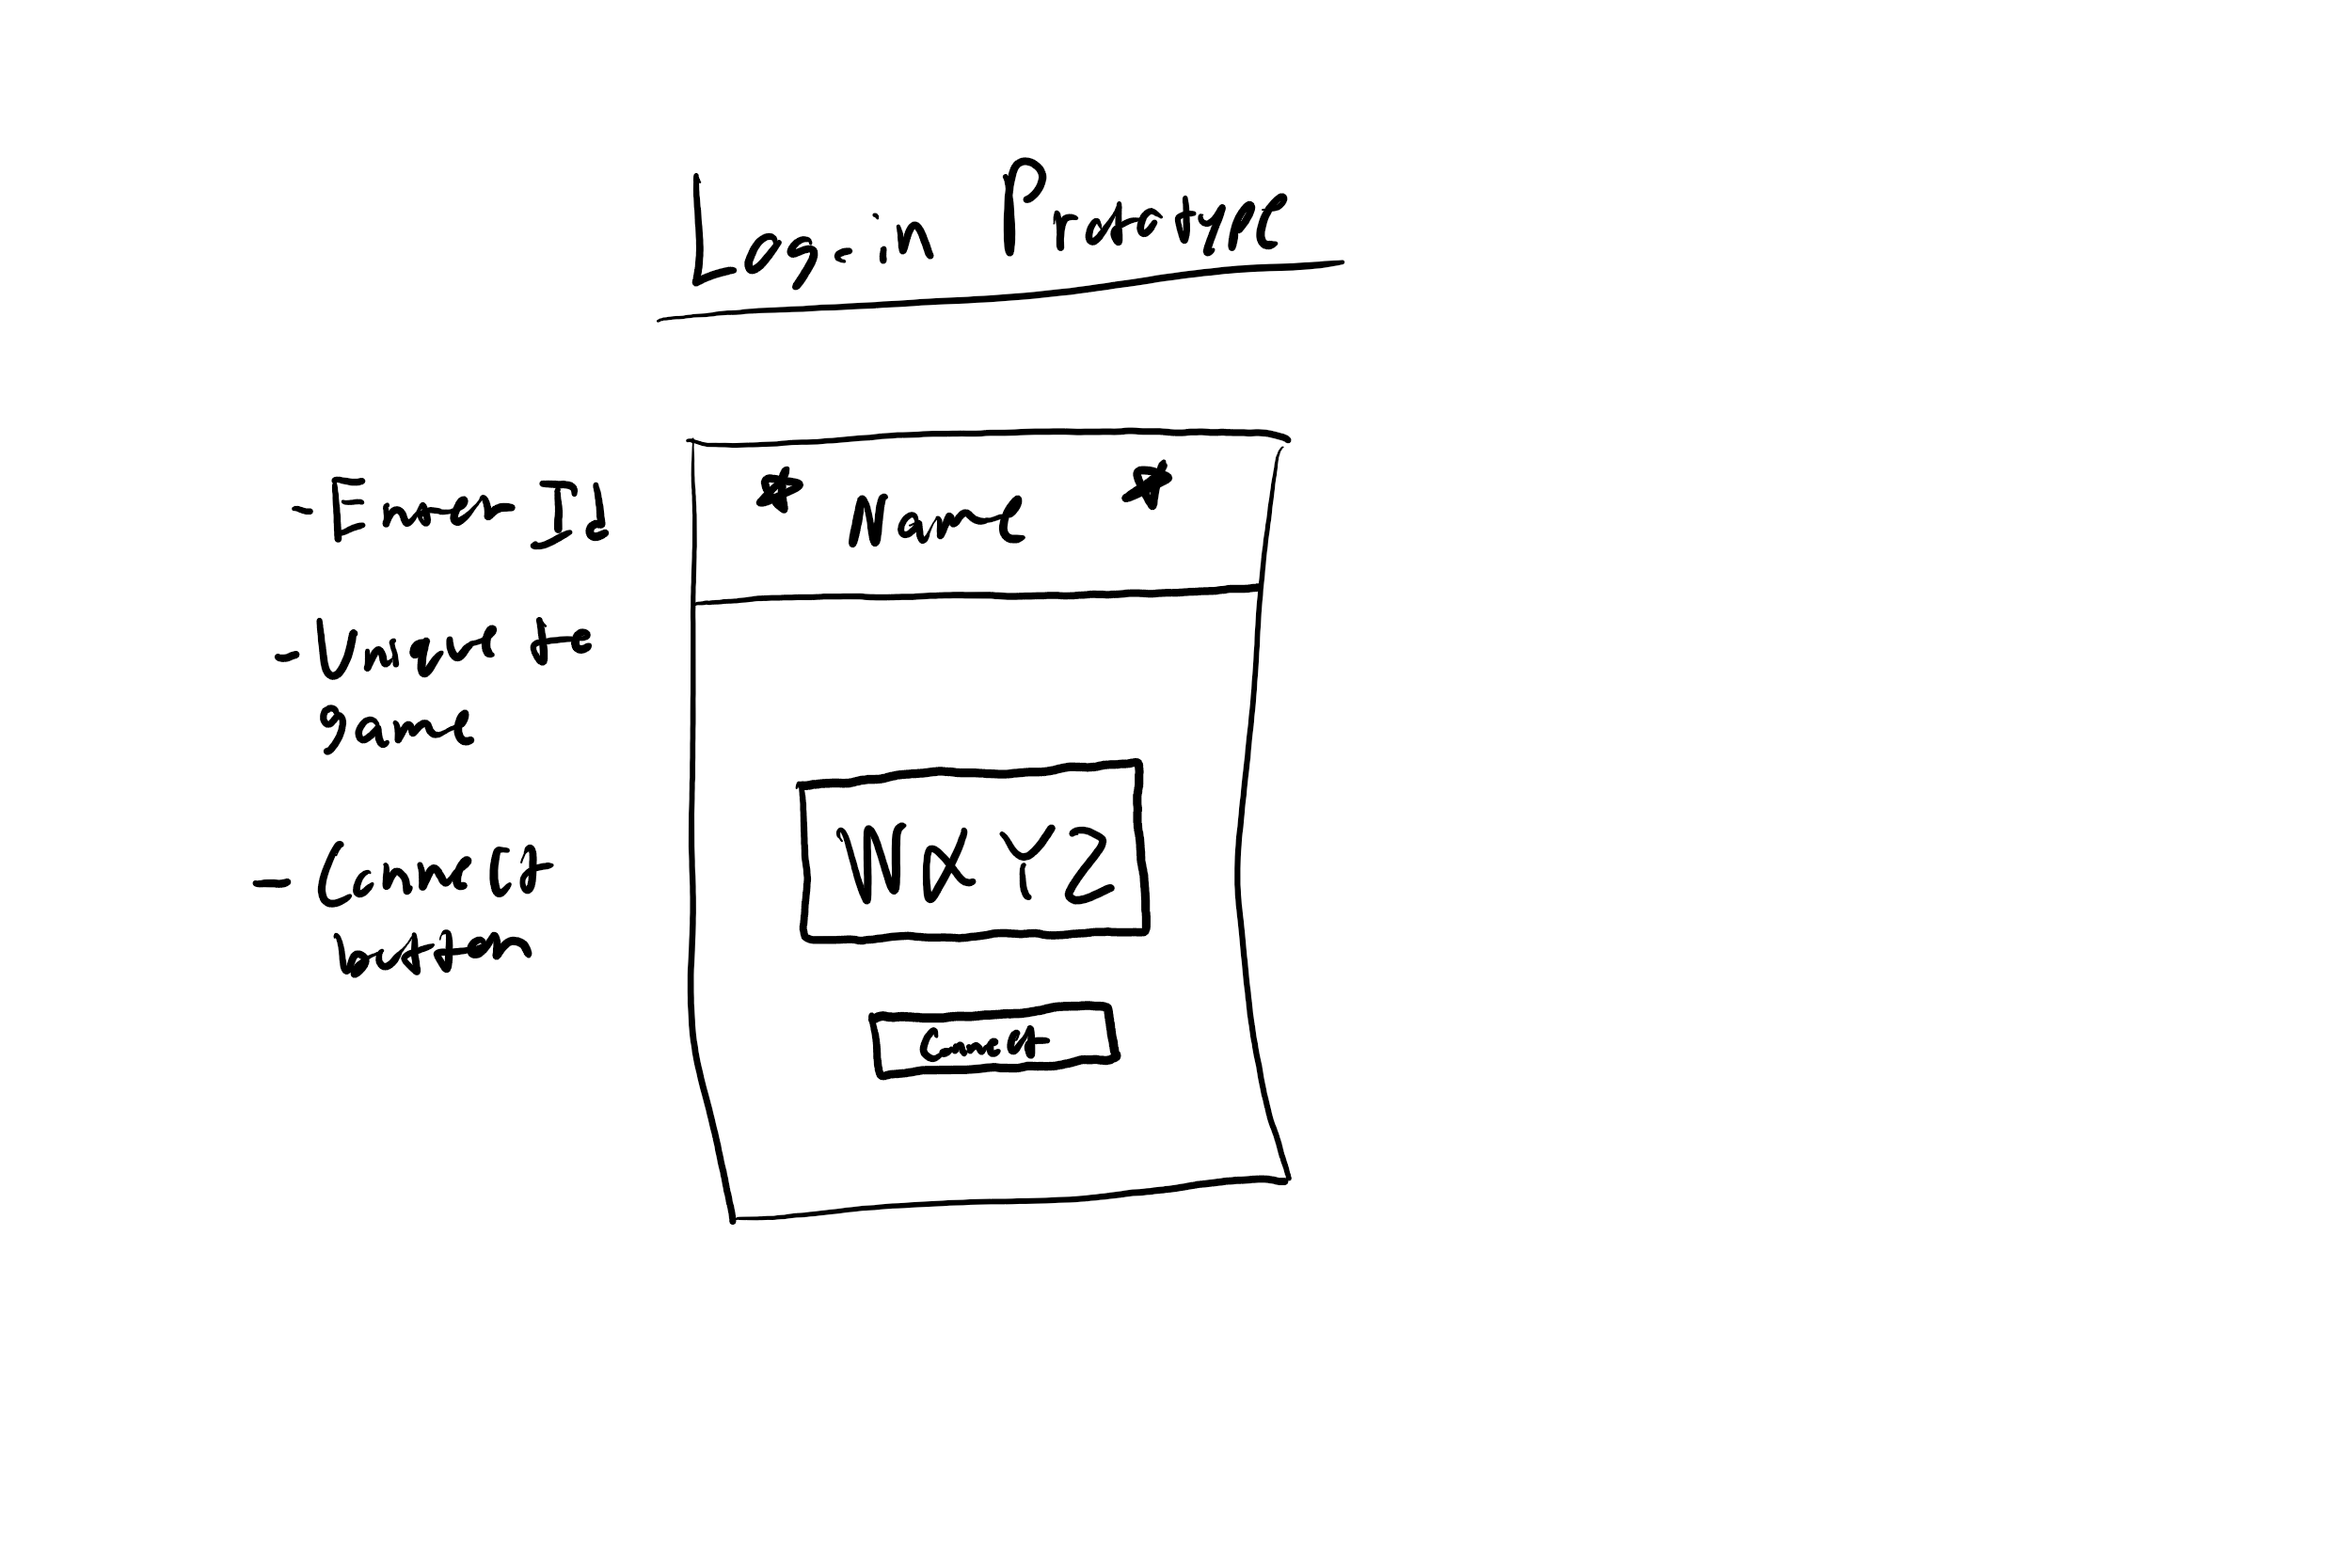 Log-in Prototype
- Enter Id
- Unique to
game
- Connect
button
Name
Connect